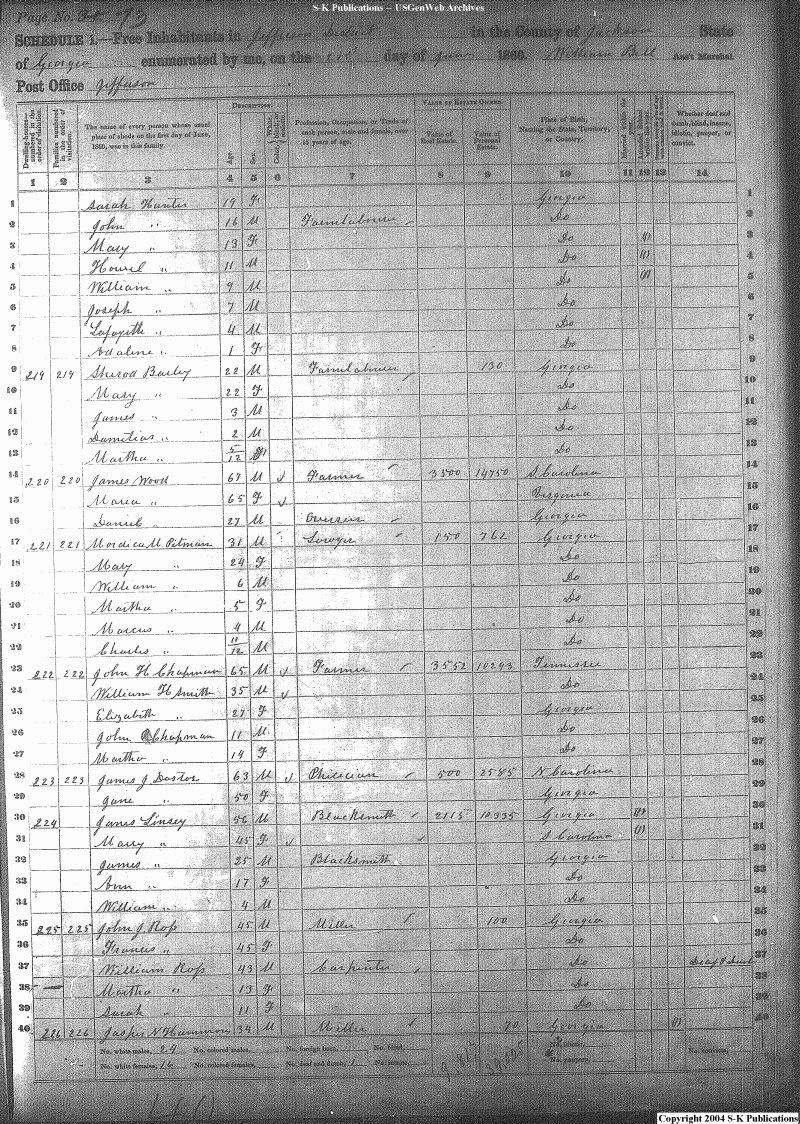 S-K Publications – USGenWeb Archives
Page No. 73
SCHEDULE 1.—Free Inhabitants in Jefferson District in the County of Jackson State
of Georgia enumerated by me, on the day of June 1860. William Bell Ass't Marshal
Post Office Jefferson
DESCRIPTION. VALUE OF ESTATE OWNED.
Dwelling-houses—numbered in the order of visitation.
Families numbered in the order of visitation.
The name of every person whose usual place of abode on the first day of June, 1860, was in this family.
Age
Sex
Color, White, black, or mulatto.
Profession, Occupation, or Trade of each person, male and female, over 15 years of age.
Value of Real Estate.
Value of Personal Estate.
Place of Birth, Naming the State, Territory, or Country.
Married within the year.
Attended School within the year.
Whether deaf and dumb, blind, insane, idiotic, pauper, or convict.
1 2 3 4 5 6 7 8 9 10 11 12 13 14
1 Sarah Hunter 19 F Georgia 1
2 John " 16 M Farmlabourer Do 2
3 Mary " 13 F Do (1) 3
4 Howel " 11 M Do (1) 4
5 William " 9 M Do (1) 5
6 Joseph " 7 M Do 6
7 Lafayette " 4 M Do 7
8 Adaline " 1 F Do 8
9 219 219 Sherod Barley 22 M Farmlabourer 130 Georgia 9
10 Mary " 22 F Do 10
11 James " 3 M Do 11
12 " 2 M Do 12
13 Martha " 5/12 F Do 13
14 220 220 James Wood 67 M Farmer 3500 14750 S Carolina 14
15 Maria " 65 F Virginia 15
16 Daniel " 27 M Overseer Georgia 16
17 221 221 Mordica M Pitman 31 M Lowyer 150 762 Georgia 17
18 Mary " 24 F Do 18
19 William " 6 M Do 19
20 Martha " 5 F Do 20
21 Marcus " 4 M Do 21
22 Charles " 10/12 M Do 22
23 222 222 John H Chapman 65 M Farmer 3552 10293 Tennessee 23
24 William H Smith 35 M Do 24
25 Elizabeth " 27 F Georgia 25
26 John Chapman 11 M Do 26
27 Martha " 14 F Do 27
28 223 223 James J Dostor 63 M Phicician 500 2585 N Carolina 28
29 Jane " 50 F Georgia 29
30 224 James Linsey 56 M Blacksmith 2115 10335 Georgia 30
31 Marry " 45 F S Carolina (1) 31
32 James " 25 M Blacksmith Georgia 32
33 Ann " 17 F Do 33
34 William " 4 M Do 34
35 225 225 John J Ross 45 M Miller 100 Georgia 35
36 Francis " 45 F Do 36
37 William Ross 43 M Carpenter Do Deaf & Dumb 37
38 Martha " 13 F Do 38
39 Sarah " 11 F Do 39
40 226 226 Jasper N 34 M Miller 70 Georgia (1) 40
No. white males, 24 No. colored males, No. foreign born, No. blind, No. idiotic, No. convicts,
No. white females, 16 No. colored females, No. deaf and dumb, 1 No. insane, No. paupers,
40
Copyright 2004 S-K Publications